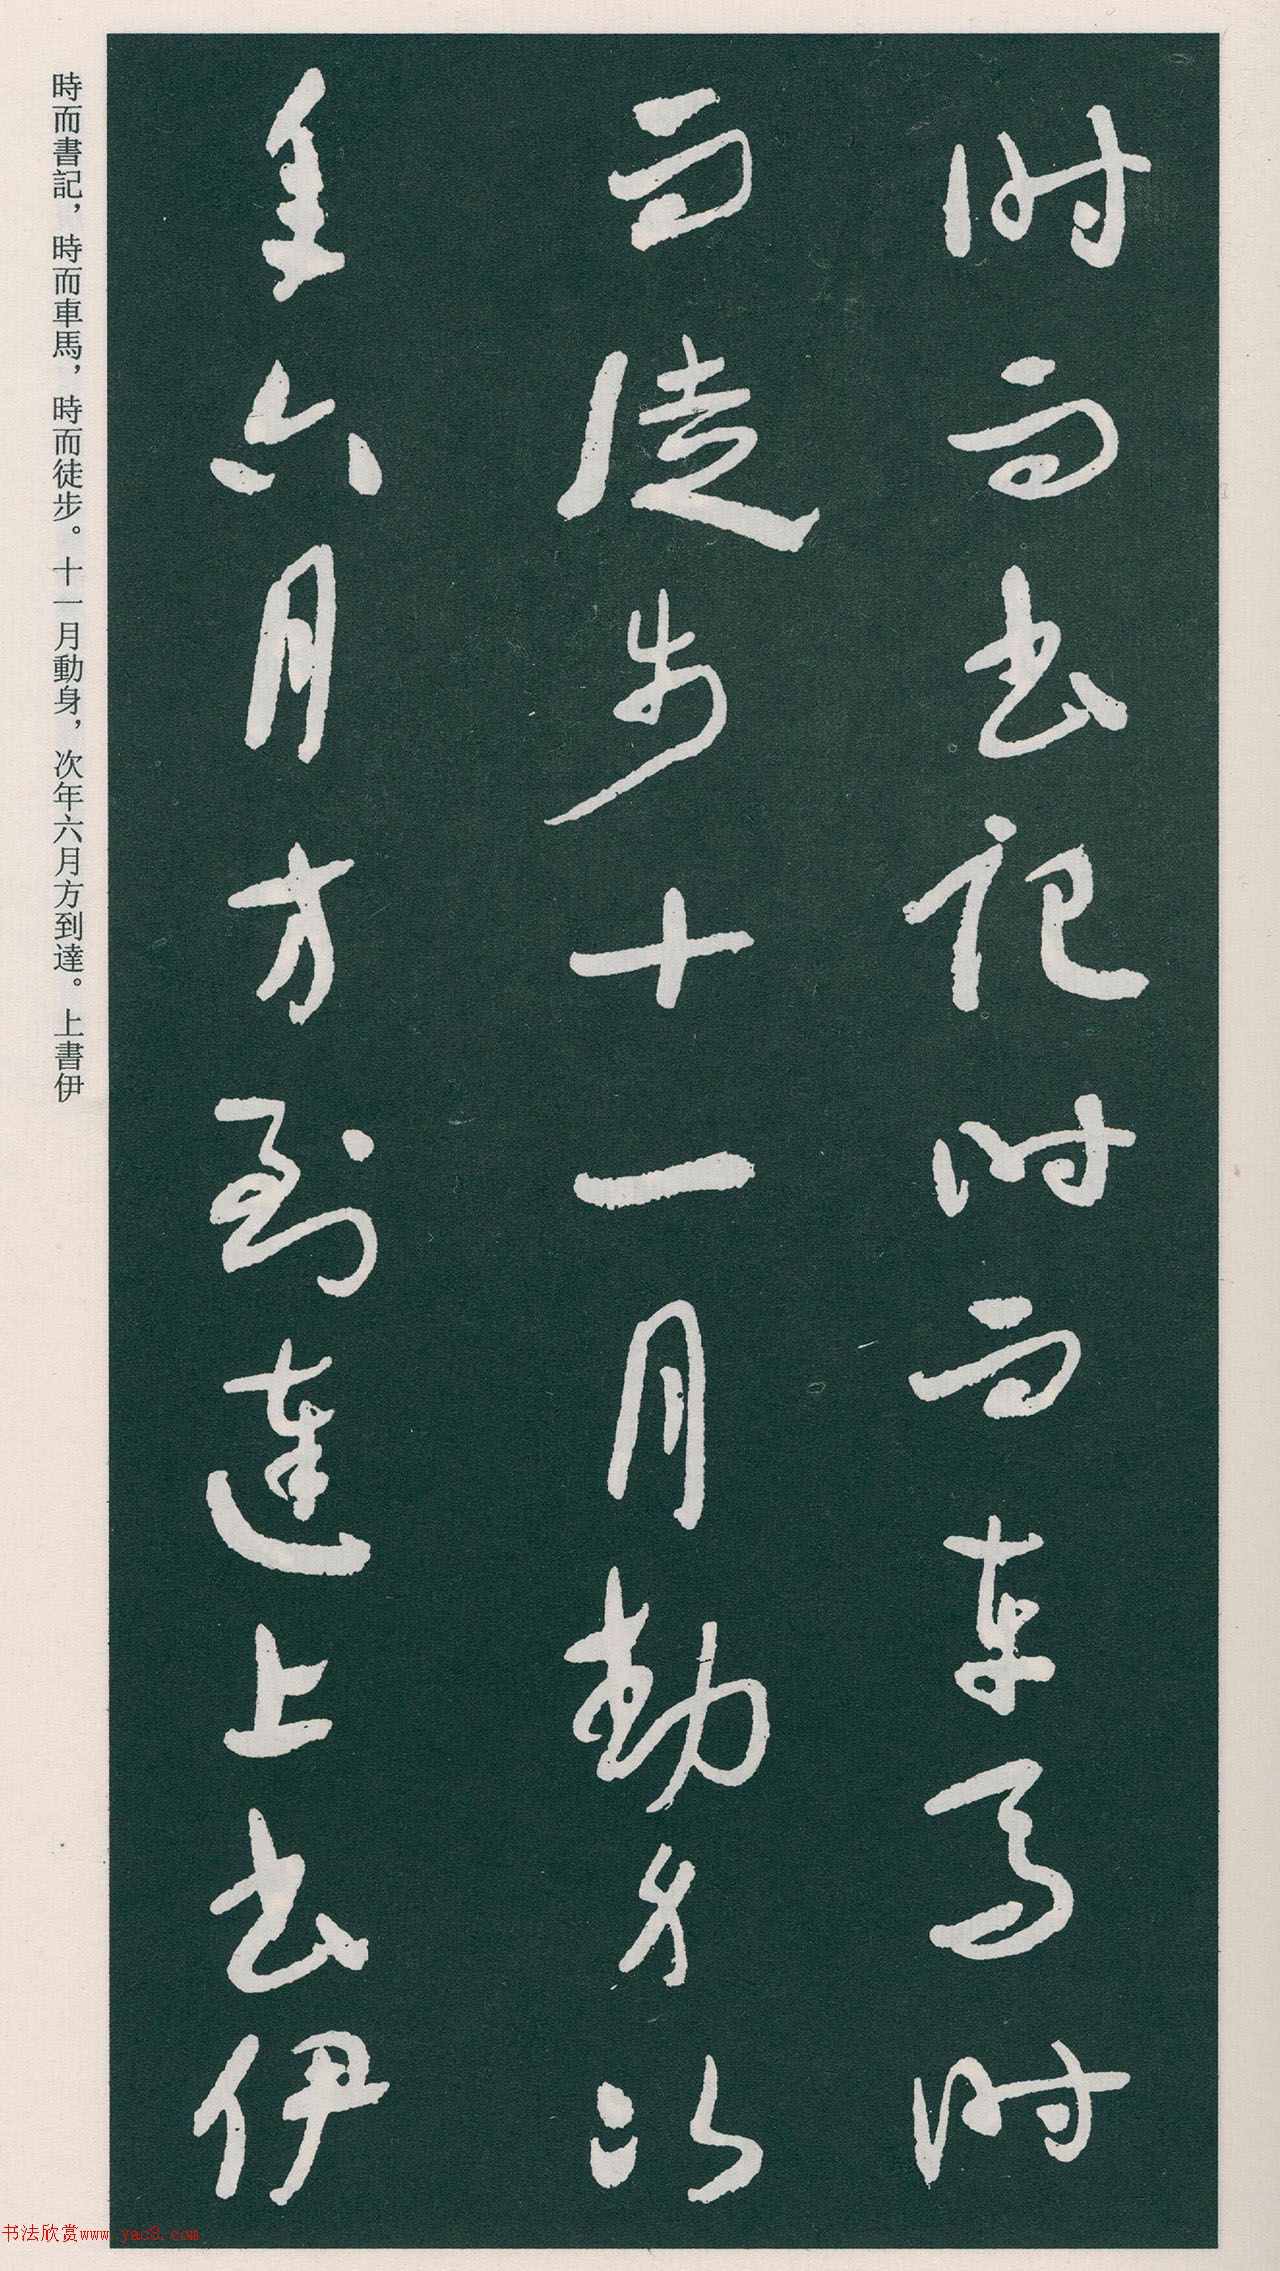 时而书记时而车马时
而徒步十一月动身次
年六月方到达上书伊
時而書記，時而車馬，時而徒步。十一月動身，次年六月方到達。上書伊
书法欣赏www.yac8.com